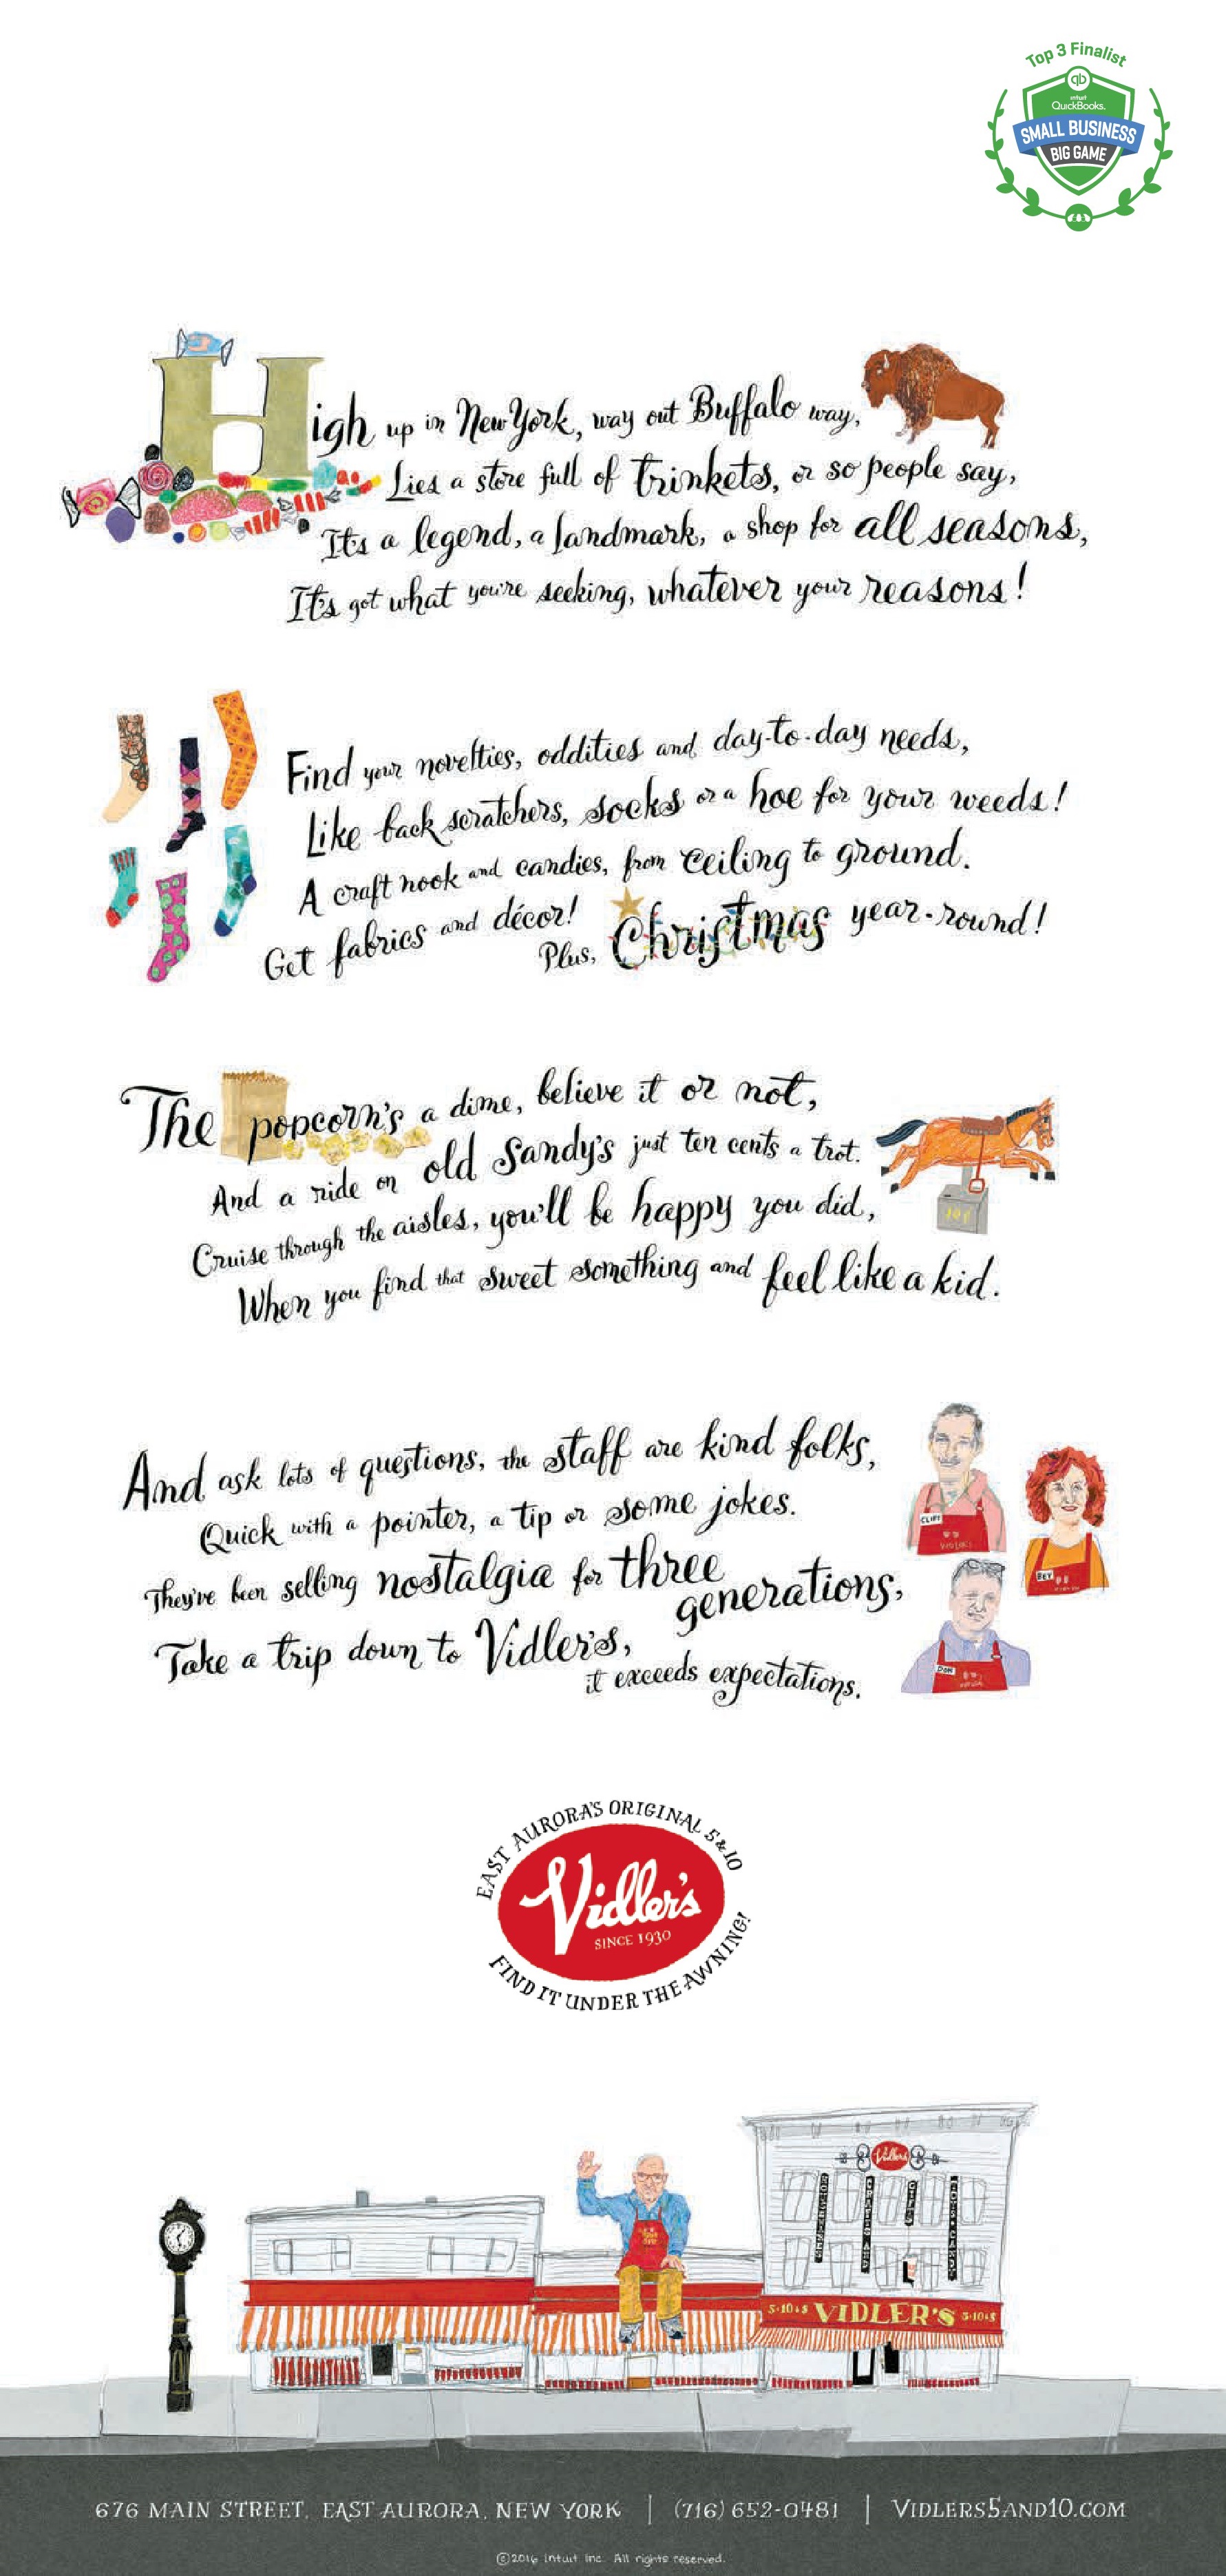 Top 3 Finalist
qb
intuit
QuickBooks.
SMALL BUSINESS
BIG GAME
High up in New York, way out Buffalo way,
Lies a store full of trinkets, or so people say,
It's a legend, a landmark, a shop for all seasons,
It's got what you're seeking, whatever your reasons!
Find your novelties, oddities and day-to-day needs,
Like back scratchers, socks or a hoe for your weeds!
A craft nook and candies, from ceiling to ground.
Get fabrics and décor! Plus, Christmas year-round!
The popcorn's a dime, believe it or not,
And a ride on old Sandy's just ten cents a trot.
10¢
Cruise through the aisles, you'll be happy you did,
When you find that sweet something and feel like a kid.
And ask lots of questions, the staff are kind folks,
Quick with a pointer, a tip or some jokes.
They've been selling nostalgia for three generations,
Take a trip down to Vidler's, it exceeds expectations.
CLIFF
VIDLER'S
BEV
DON
EAST AURORA'S ORIGINAL 5 & 10
Vidler's
SINCE 1930
FIND IT UNDER THE AWNING!
Vidler's
5·10¢$ VIDLER'S 5·10¢$
676 MAIN STREET, EAST AURORA, NEW YORK | (716) 652-0481 | VIDLERS5AND10.COM
©2016 Intuit Inc. All rights reserved.